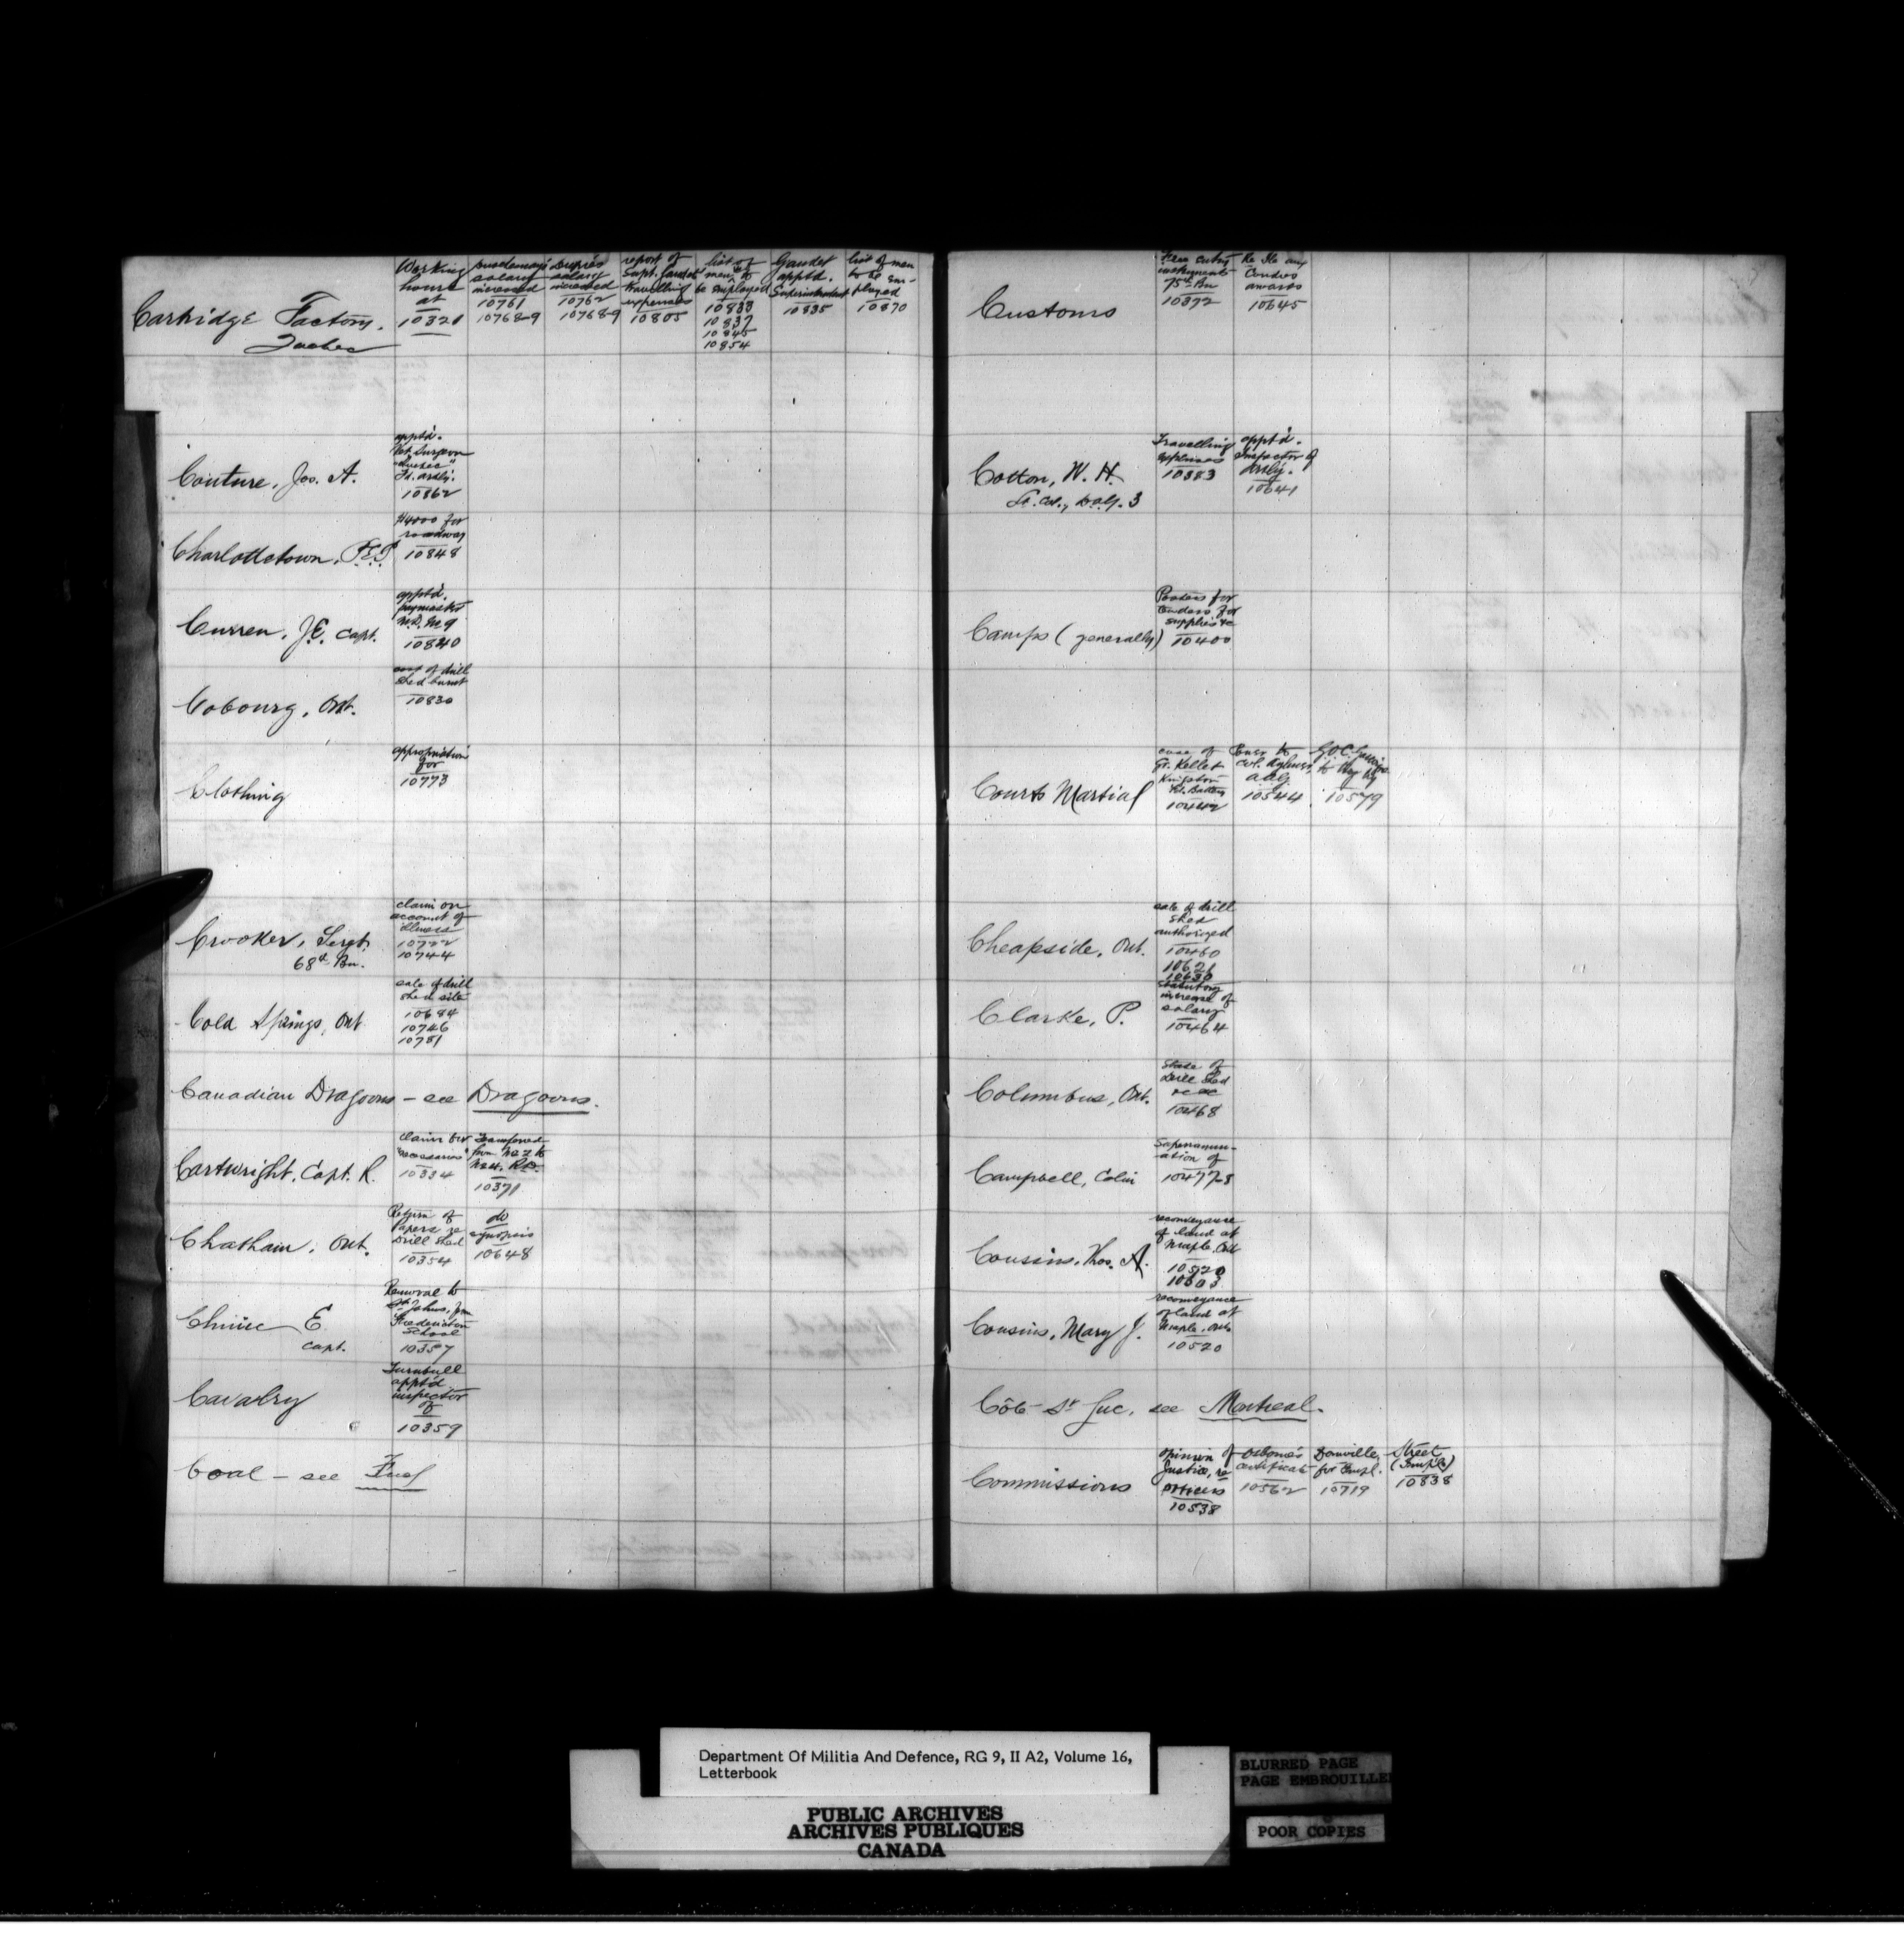 Cartridge Factory,
Quebec
Working
hours
at
10321
salary
increased
10761
10768-9
Dupré's
salary
increased
10762
10768-9
report of
Supt. Gaudet
travelling
expenses
10805
list of
men to
be employed
10833
10837
10845
10854
Gaudet
apptd.
Superintendent
10835
list of men
to be em-
ployed
10870
Couture, Jos. A.
apptd.
Vet. Surgeon
"Quebec"
Fd. Arty.
10862
Charlottetown, P.E.I.
$4000 for
roadway
10848
Curren, J.E. Capt.
apptd.
paymaster
M.D. No 9
10840
Cobourg, Ont.
cost of drill
shed burnt
10830
Clothing
appropriation
for
10773
Crooker, Sergt.
68th Bn.
claim on
account of
illness
10722
10744
Cold Springs, Ont
sale of drill
shed site
10684
10746
10751
Canadian Dragoons - see Dragoons.
Cartwright, Capt. R.
claim for
10334
Transferred
from No 2 to
No 4. R.D.
10371
Chatham, Ont.
Return of
Papers re
Drill Shed
10354
do
synopsis
10648
Chinic E
Capt.
Removal to
St Johns, from
Fredericton
School
10357
Cavalry
Turnbull
apptd
inspector
of
10359
Coal - see Fuel
Customs
Free entry
instruments
75th Bn
10372
Re Ile aux
Coudres
awards
10645
Cotton, W. H.
Lt. Col., D.A.G. 3
Travelling
expenses
10383
apptd.
Inspector of
Arty.
10641
Camps (generally)
Posters for
tenders for
supplies &c
10400
Courts Martial
case of
Gr. Kellet
Kingston
Fd. Battery
10442
10544
10579
Cheapside, Ont.
sale of drill
shed
authorized
10460
10621
10630
Clarke, P.
statutory
increase of
salary
10464
Columbus, Ont.
State of
Drill Shed
10468
Campbell, Colin
Superannu-
ation of
10477-8
Cousins, Thos. A.
reconveyance
of land at
Maple, Ont
10520
10603
Cousins, Mary J.
reconveyance
of land at
Maple, Ont.
10520
Côte St Luc, see Montreal.
Commissions
opinion of
Justice, re
officers
10538
Osborne's
certificate
10562
Domville
for Empl.
10719
Street
10838
Department Of Militia And Defence, RG 9, II A2, Volume 16,
Letterbook
PUBLIC ARCHIVES
ARCHIVES PUBLIQUES
CANADA
BLURRED PAGE
PAGE EMBROUILLEE
POOR COPIES